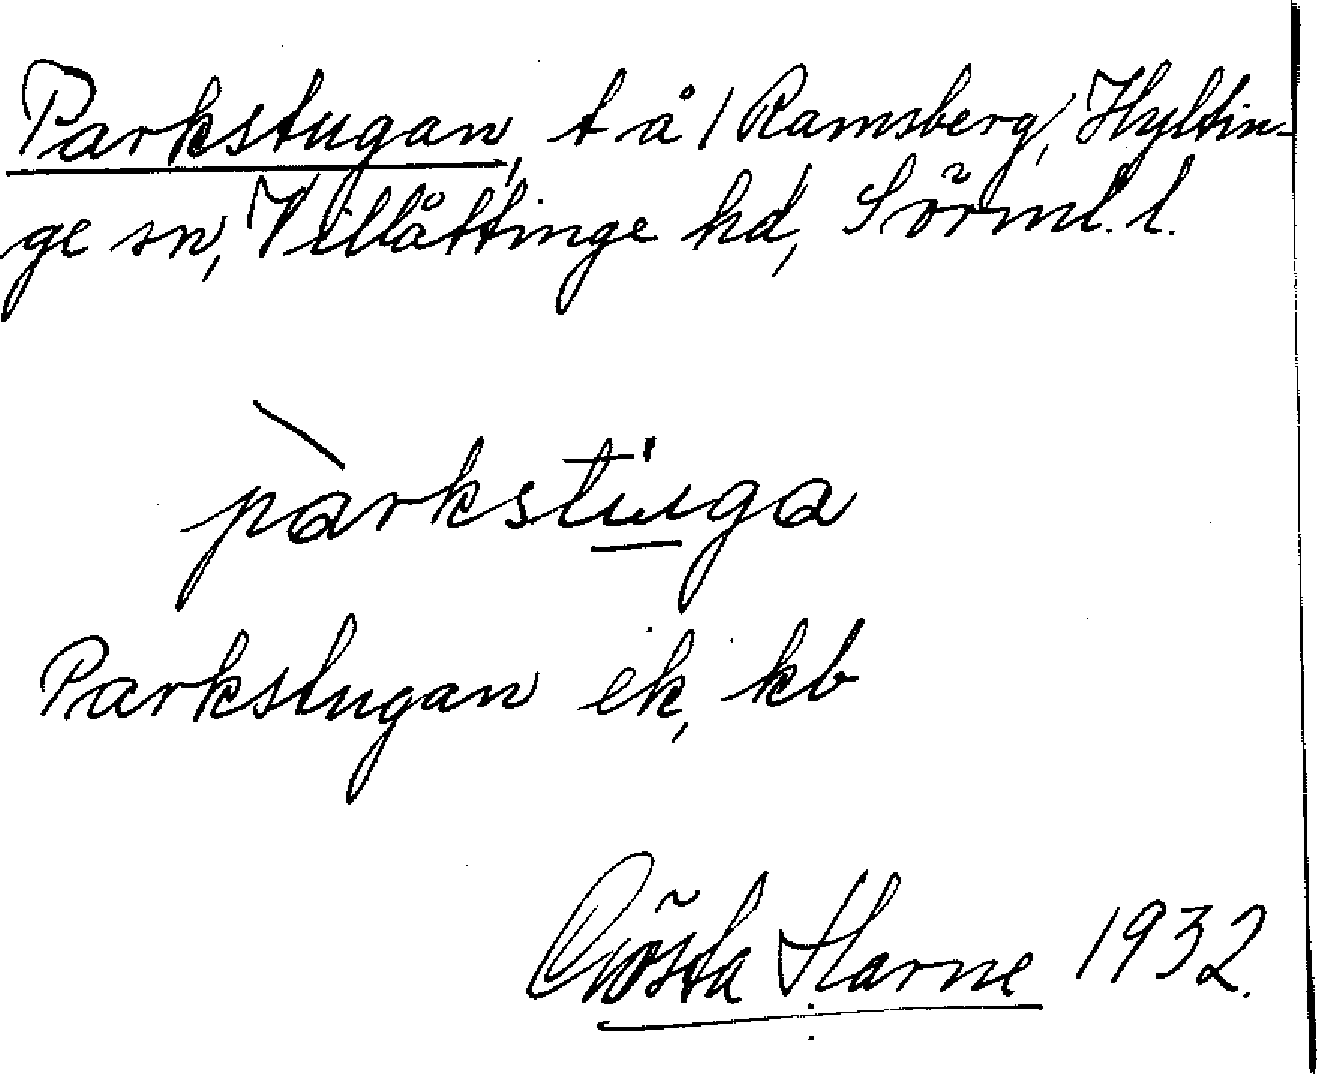 Parkstugan, t å 1 Ramsberg, Hyltin-
ge sn, Villåttinge hd, Sörml. l.
pàrkstu̇ga
Parkstugan ek, kb
Gösta Harne 1932.